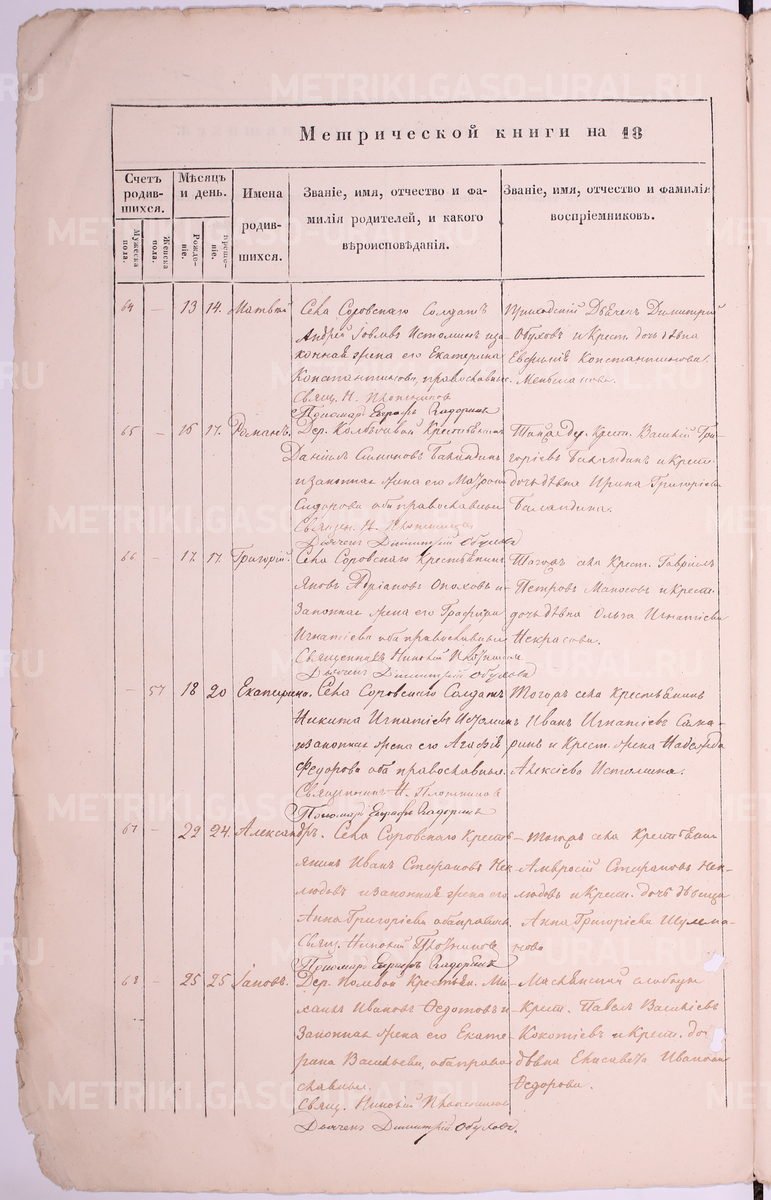 METRIKI.GASO-URAL.RU
Метрической книги на 18
Счетъ родив-шихся.
Мѣсяцъ и день.
Имена родив-шихся.
Званіе, имя, отчество и фа-
милія родителей, и какого
вѣроисповѣданія.
Званіе, имя, отчество и фамилія
воспріемниковъ.
Мужеска пола.
Женска пола.
Рожде-ніе.
Креще-ніе.
64 – 13 14. Матвѣй
Села Соровскаго Солдатъ
Андрей
конная жена его Екатерина
Константинова, православные
Свящ. Н. Плотниковъ
Пономарь Евграфъ
Приходскій Дьячекъ Димитрій
Обуховъ и Крест. дочь дѣвка
Евфимія Константинова
65 – 15 17. Романъ.
Дер. Крестьянинъ
Даніилъ Симоновъ Баландинъ
и законная жена его Матрона
Сидорова оба православные
Свящ. Н. Плотниковъ
Дьячекъ Димитрій Обуховъ
Крест. Василій Гри-
горіевъ Баландинъ и Крест.
дочь дѣвка Ирина Григоріева
Баландина.
66 – 17 17. Григорій.
Села Соровскаго Крестьянинъ
Яковъ Адріановъ и
Законная жена его Глафира
Игнатіева оба православные
Священникъ Николай Плотниковъ
Дьячекъ Димитрій Обуховъ
Тогожъ села Крест. Гавріилъ
Петровъ и Крест.
дочь дѣвка Ольга Игнатіева
Некрасова.
– 57 18 20 Екатерина.
Села Соровскаго Солдатъ
Никита Игнатіевъ Истоминъ
и законная жена его Агафія
Федорова оба православные.
Священникъ Н. Плотниковъ
Пономарь Евграфъ
Тогожъ села Крестьянинъ
Иванъ Игнатіевъ Сама-
ринъ и Крест. жена Надежда
Алексіева Истомина.
67 – 22 24. Александръ.
Села Соровскаго Кресть-
янинъ Иванъ Стефановъ Нек-
людовъ и законная жена его
Анна Григоріева оба правосл.
Свящ. Николай Плотниковъ
Пономарь Евграфъ
Тогожъ села Крестьянинъ
Амвросій Стефановъ Нек-
людовъ и Крест. дочь дѣвица
Анна Григоріева Шулма-
нова
68 – 25 25 Іаковъ.
Дер. Полевой Крестьян. Ми-
хаилъ Ивановъ Ѳедотовъ и
Законная жена его Екате-
рина Васильева, оба право-
славные.
Свящ. Николай Плотниковъ
Дьячекъ Димитрій Обуховъ.
слободы
Крест. Павелъ Васильевъ
и Крест. доч.
дѣвка Елисавета Иванова
Ѳедорова.